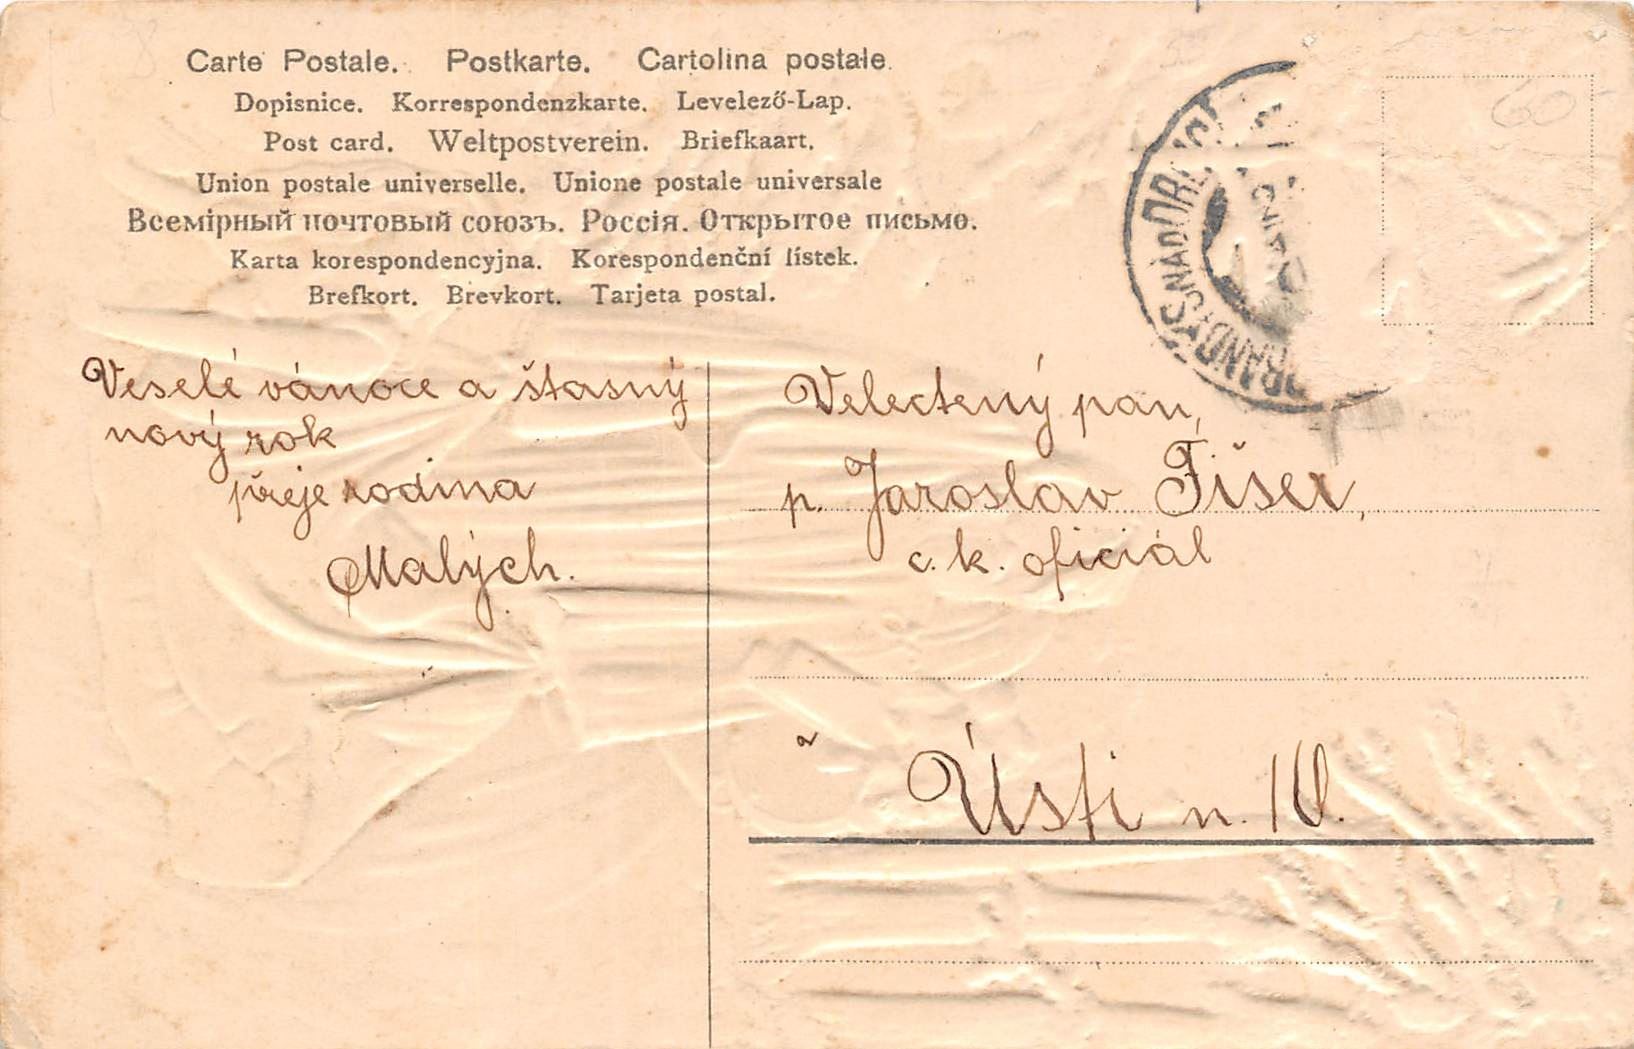 Carte Postale. Postkarte. Cartolina postale.
Dopisnice. Korrespondenzkarte. Levelező-Lap.
Post card. Weltpostverein. Briefkaart.
Union postale universelle. Unione postale universale
Всемірный почтовый союзъ. Россія. Открытое письмо.
Karta korespondencyjna. Korespondenční lístek.
Brefkort. Brevkort. Tarjeta postal.
60
Veselé vánoce a štasný
nový rok
přeje rodina
Malých.
Velectený pan,
p. Jaroslav Fišer,
c. k. oficiál
Ústi n.